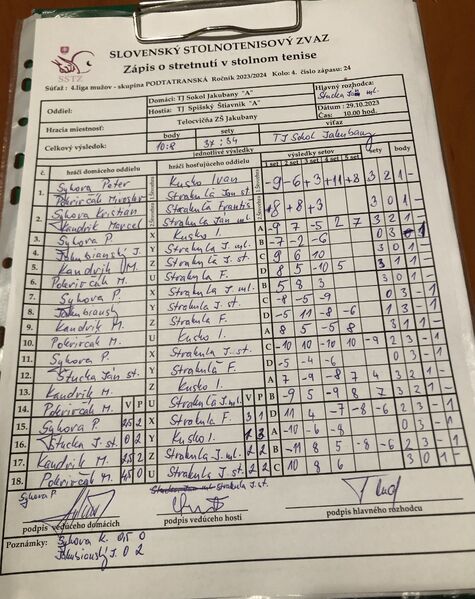 SLOVENSKÝ STOLNOTENISOVÝ ZVAZ
Zápis o stretnutí v stolnom tenise
SSTZ
Súťaž : 4.liga mužov - skupina PODTATRANSKÁ Ročník 2023/2024 Kolo: 4. číslo zápasu: 24
Oddiel:
Domáci: TJ Sokol Jakubany "A"
Hlavný rozhodca:
Hostia: TJ Spišský Štiavnik "A"
Hracia miestnosť:
Telocvičňa ZŠ Jakubany
Dátum : 29.10.2023
Čas: 10.00 hod.
body
sety
víťaz
Celkový výsledok:
10:8
37:34
TJ Sokol Jakubany
jednotlivé výsledky
č.
hráči domáceho oddielu
hráči hosťujúceho oddielu
výsledky setov
sety
body
1 set
2 set
3 set
4 set
5 set
1.
Sykora Peter
Kusko Ivan
-9 -6 +3 +11 +8 3 2 1 -
Pokrivčák Miroslav
Strakula Ján st.
2.
Sykora Kristian
Strakula Františ
+8 +8 +3 3 0 1 -
Kandrik Marcel
Strakula Ján ml.
3.
Sykora P.
X
Kusko I.
A
-9 7 -5 2 7 3 2 1 -
4.
Jakubianský J.
Y
Strakula J. ml.
B
-7 -2 -6
5.
Kandrik M.
Z
Strakula J. st.
C
9 6 10 3 0 1 -
6.
Pokrivčák M.
U
Strakula F.
D
8 5 -10 5 3 1 1 -
7.
Sykora P.
X
Strakula J. ml.
B
5 8 3 3 0 1 -
8.
Y
Strakula J. st.
C
-8 -5 -9 0 3 - 1
9.
Kandrik M.
Z
Strakula F.
D
-5 11 -8 -6 1 3 - 1
10.
Pokrivčák M.
U
Kusko I.
A
8 5 -5 8 3 1 1 -
11.
Sykora P.
X
Strakula J. st.
C
-10 10 10 10 -9 2 3 - 1
12.
Štucka Ján st.
Y
Strakula F.
D
-5 -4 -6 0 3 - 1
13.
Kandrik M.
Z
Kusko I.
A
7 -9 -8 7 4 3 2 1 -
14.
Pokrivčák M.
V P
U
Strakula J. ml.
V P
B
-9 5 -9 8 7 3 2 1 -
15.
Sykora P.
X
Strakula F.
3 1
D
11 4 -7 -8 -6 2 3 - 1
16.
Štucka J. st.
0 2
Y
Kusko I.
A
-10 -6 -8 0 3 - 1
17.
Kandrik M.
Z
Strakula J. ml.
2 2
B
-11 8 5 -8 -6 2 3 - 1
18.
Pokrivčák M.
U
Strakula J. st.
2 2
C
10 8 6 3 0 1 -
Sykora P.
Strakula J. st.
podpis vedúceho domácich
podpis vedúceho hostí
podpis hlavného rozhodcu
Poznámky:
Sykora K.
Jakubianský J. 0 2